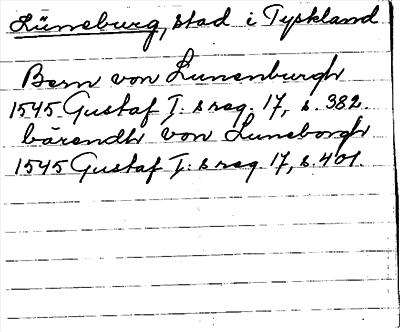 Lüneburg, stad i Tyskland
Bern von Lunenburgh
1545 Gustaf I: s reg. 17, s. 382.
bärendt von Luneborgh
1545 Gustaf I: s reg. 17, s. 401.